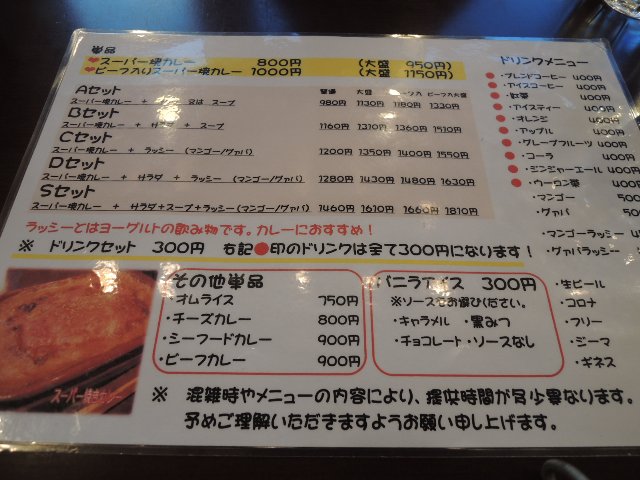 単品
❤スーパー焼カレー 800円 (大盛 950円)
❤ビーフ入りスーパー焼カレー 1000円 (大盛 1150円)
Aセット 普通 大盛 ビーフ入 ビーフ入大盛
スーパー焼カレー + サラダ 又は スープ 980円 1130円 1180円 1330円
Bセット
スーパー焼カレー + サラダ + スープ 1160円 1310円 1360円 1510円
Cセット
スーパー焼カレー + ラッシー (マンゴー/グァバ) 1200円 1350円 1400円 1550円
Dセット
スーパー焼カレー + サラダ + ラッシー (マンゴー/グァバ) 1280円 1430円 1480円 1630円
Sセット
スーパー焼カレー +サラダ+スープ+ラッシー(マンゴー/グァバ) 1460円 1610円 1660円 1810円
ラッシーとはヨーグルトの飲み物です。カレーにおすすめ!
※ ドリンクセット 300円 右記●印のドリンクは全て300円になります!
その他単品
・オムライス 750円
・チーズカレー 800円
・シーフードカレー 900円
・ビーフカレー 900円
バニラアイス 300円
※ソースをお選びください。
・キャラメル ・黒みつ
・チョコレート ・ソースなし
スーパー焼きカレー
※ 混雑時やメニューの内容により、提供時間が多少異なります。
予めご理解いただきますようお願い申し上げます。
ドリンクメニュー
●・ブレンドコーヒー 400円
●・アイスコーヒー 400円
●・紅茶 400円
●・アイスティー 400円
●・オレンジ 400円
●・アップル 400円
●・グレープフルーツ 400円
●・コーラ 400円
●・ジンジャーエール 400円
●・ウーロン茶 400円
・マンゴー 500
・グァバ 50
・マンゴーラッシー
・グァバラッシー
・生ビール
・コロナ
・フリー
・ジーマ
・ギネス